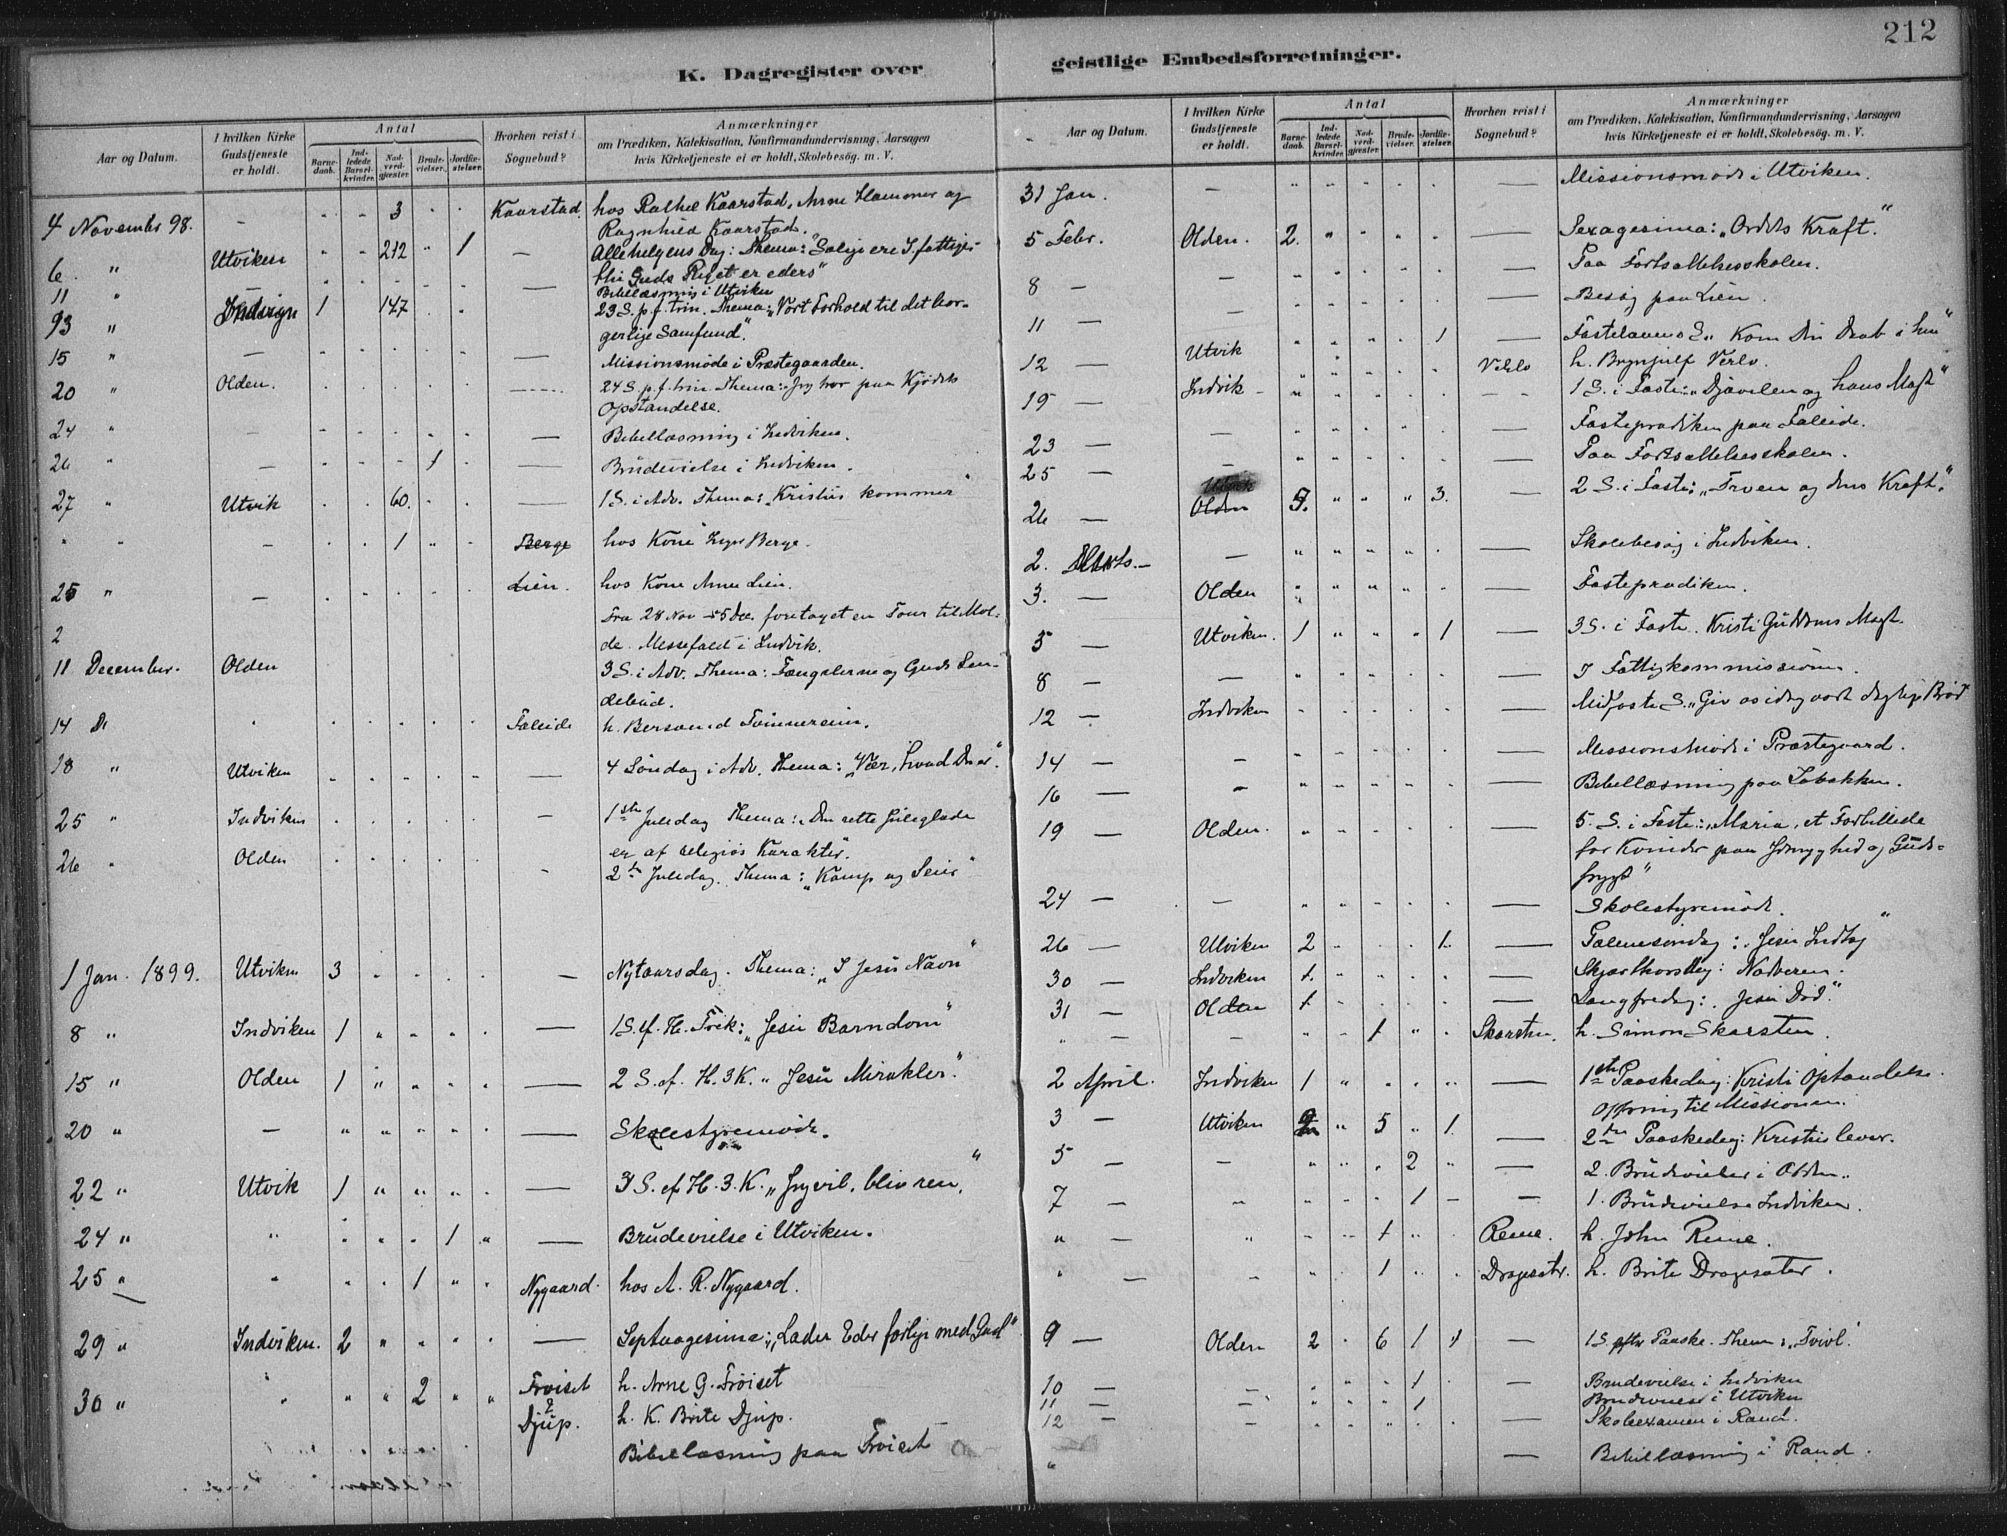 212
K. Dagregister over
Aar og Datum.
I hvilken Kirke Gudstjeneste er holdt.
Antal
Barnedaab.
Indledede Barselkvinder.
Nadverdgjester.
Brudevielser.
Jordfæstelser.
Hvorhen reist i Sognebud?
Anmærkninger
om Prædiken, Katekisation, Konfirmandundervisning, Aarsagen
hvis Kirketjeneste ei er holdt, Skolebesög. m. V.
4 November 98. - " " 3 " " Kaarstad. hos Rathel Kaarstad, Anne Hammer og
Ragnhild Kaarstad.
6 " Utviken " " 212 " 1 - Allehelgens Dag: Thema: "Salige ere I fattige
thi Guds Riget er eders"
11 " - Bibellæsning i Utviken
93 " Indvign 1 147 23 S. p. f. trin. Thema: "Vort Forhold til det bor-
gerlige Samfund".
15 " - Missionsmøde i Præstegaarden.
20 " Olden. 24 S. p. f. trin Thema: "Jeg tror paa Kjødets
Opstandelse.
24 " - Bibellæsning i Indviken.
26 " - 1 Brudevielse i Indviken.
27 " Utvik 60. 1 S. i Adv. Thema: "Kristus kommer"
" " - 1 Berge hos Kone Berge.
25 " - Lien. hos Kone Anne Lien.
2 Fra 28 Nov - 5 Dec. foretaget en Tour til Mol-
de. Messefald i Indvik.
11 December. Olden 3 S. i Adv. Thema: Fængslerne og Guds Sen-
debud.
14 D Faleide h. Bersond Tvinnereim.
18 " Utviken 4 Søndag i Adv. Thema: "Vær, hvad Du er".
25 " Indviken 1ste Juledag Thema: "Den rette Juleglæde
er af religiøs Karakter".
26 " Olden 2den Juledag. Thema: "Kamp og Seier"
1 Jan. 1899. Utviken 3 - Nytaarsdag. Thema: "I Jesu Navn"
8 " Indviken 1 " " " " - 1 S. ef. H. 3 K.: "Jesu Barndom"
15 " Olden 1 " " " " - 2 S. ef. H. 3 K. "Jesu Mirakler".
20 " - " " " " " - Skolestyremøde.
22 " Utvik 1 " " " " - 3 S. ef H. 3. K. "Jeg vil, bliv ren."
24 " " " " " 1 " - Brudevielse i Utviken.
25 " " " " 1 " " Nygaard. hos A. R. Nygaard.
29 " Indviken. 2 " " " " - Septuagesima: "Lader Eder forlige med Gud"
30 " " " " 2 " " Frøiset h. Arne G. Frøiset
Djup. h. K. Brite Djup.
Bibellæsning paa Frøiset
geistlige Embedsforretninger.
Aar og Datum.
I hvilken Kirke Gudstjeneste er holdt.
Antal
Barnedaab.
Indledede Barselkvinder.
Nadverdgjester.
Brudevielser.
Jordfæstelser.
Hvorhen reist i Sognebud?
Anmærkninger
om Prædiken, Katekisation, Konfirmandundervisning, Aarsagen
hvis Kirketjeneste ei er holdt, Skolebesög. m. V.
31 Jan. - " " " " " - Missionsmøde i Utviken.
5 Febr. Olden. 2. " " " " - Sexagesima: "Ordets Kraft."
8 - - Paa Fortsættelsesskolen.
11 - - Besøg paa Lien.
12 - Utvik 1 Fastelavns S. " Kom
h. Brynjulf Verlo
19 - Indvik - 1 S. i Faste: "Djævelen og hans Magt"
23 - - Fasteprædiken paa Faleide.
25 - - Paa Fortsættelsesskolen.
26 - Olden " " " 3. - 2 S. i Faste: "Troen og dens Kraft".
2. Marts. - - Skolebesøg i Indviken.
3. - Olden - Fasteprædiken.
5 - Utviken. 1 " " " 1 - 3 S. i Faste. Kristi Magt.
8 - - - Fattigkommissionen.
12 - Indviken Midfaste S. "Giv os idag vort daglige Brød
14 - - Missionsmøde i Præstegaard.
16 - " Bibellæsning paa
19 - Olden. 5. S. i Faste: "Maria, et Forbillede
for Kvinder paa Ydmyghed og Guds-
frygt"
24 - - Skolestyremøde.
26 - Utviken 2 1. - Palmesøndag: "Jesu Indtog"
30 - Indviken 1. Skjærthorsdag: Nadveren.
31 - Olden 1 - Langfredag: "Jesu Død".
" - - 1 Skarsten. h. Simon Skarsten.
2 April. Indviken 1 " " " " - 1ste Paaskedag: Kristi Opstandelse.
Ofring til Missionen.
3 - Utviken " 5 " 1. - 2den Paaskedag: Kristus lever.
5 - - 2 - 2. Brudevielser i Olden.
7 - " 1 - - 1. Brudevielse Indviken.
" - " 1 Reme. h. John Reme.
" - " 1 Dragesæter. h. Brite Dragesæter.
9 - Olden 2 " 6 1 1 - 1 S. efter Paaske. Thema: "Tvivl".
10 - - 1 - Brudevielse i Indviken
11 - - 1 Brudevielse i Utviken
12 - - Skoleexamen i Rand.
" - Bibellæsning i Rand.